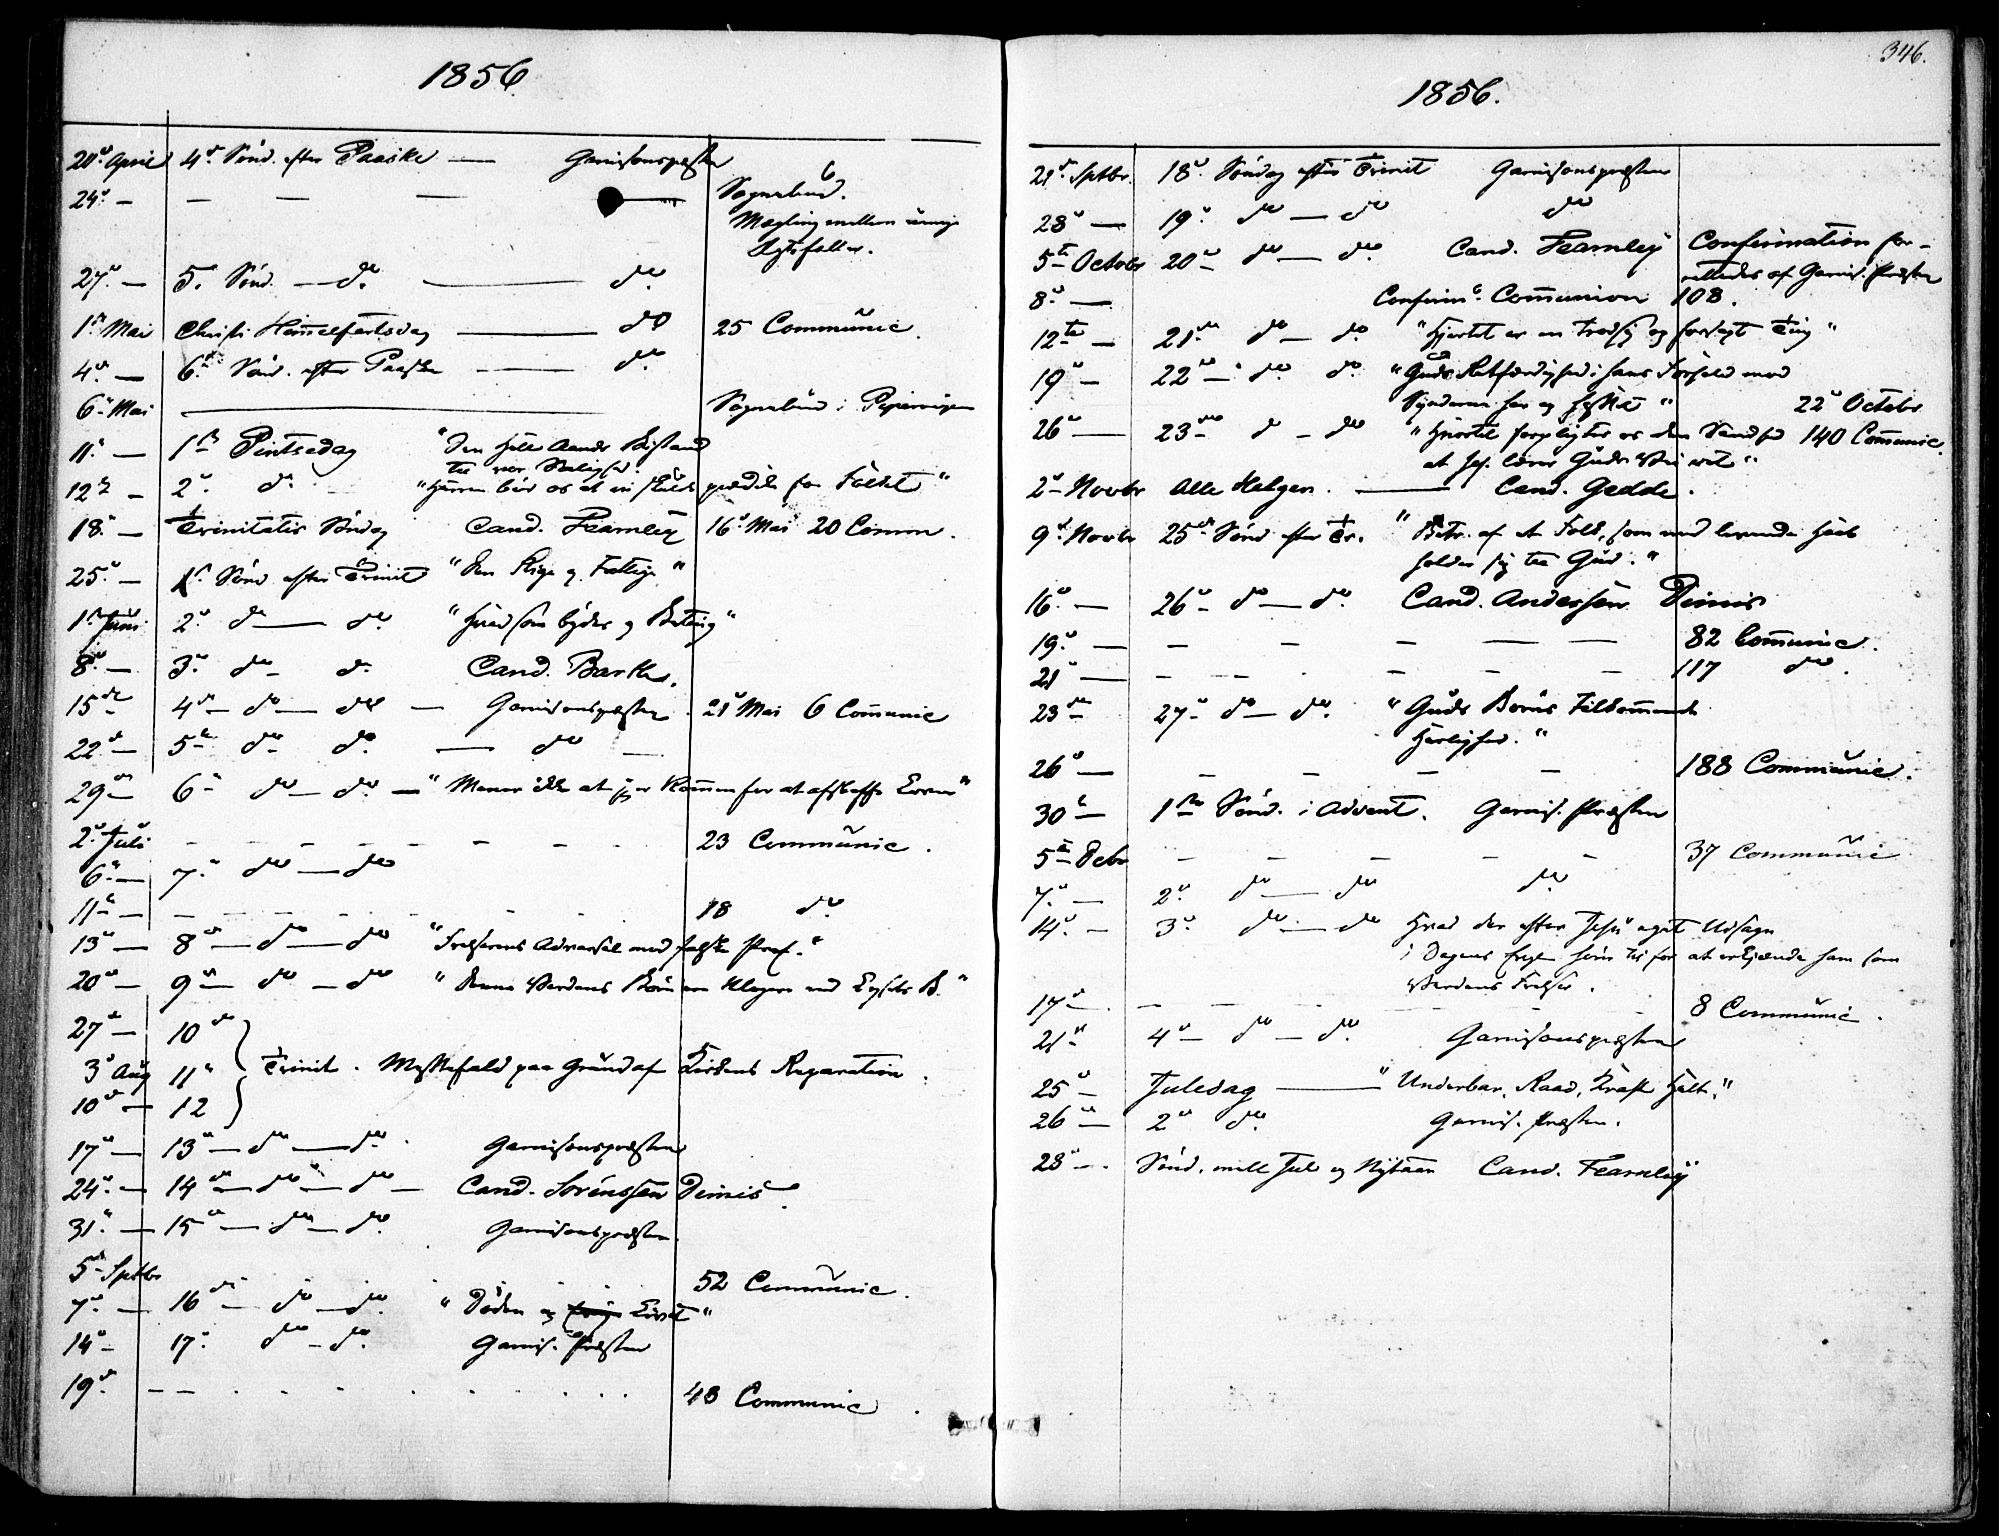 1856
20de April 4de Sønd. efter Paaske — Garnisonspræsten
24de — — — — Sognebud.
Mægling mellem uenige
Ægtefolk.
27de — 5te Sønd. — do — do
1ste Mai Christi Himmelfartsdag — do 25 Communic.
4de — 6te Sønd. efter Paaske — do
6te Mai — Sognebud i Pipervigen
11te — 1ste Pintsedag "Den Hell. Aands Bistand
til vor Salighed.
12te — 2den do "Herren bød os at vi skulde prædike for Folket"
18de — Trinitatis Søndag Cand. Fearnley 16de Mai 20 Comm.
25de — 1ste Sønd efter Trinit "Den Rige og Fattige"
1ste Juni 2den do — do "Indbydes og
8de — 3die do — do Cand. Barth.
15de — 4de — do — do — Garnisonspræsten 21de Mai 6 Communic
22de — 5te do do — do —
29de — 6te do — do — "Mener ikke at jeg er kommen for at afskaffe Loven"
2den Juli — — — — — 23 Communic.
6te — 7de do — do
11te — — — — — — 18 do
13de — 8de — do — do "Frelserens Advarsel mod falske Prof."
20de — 9de — do — do "Denne Verdens Børn ere klogere end Lysets B."
27de — 10de
3die Aug 11te Trinit. Messefald paa Grund af Kirkens Reparation.
10de — 12
17de — 13de — do — do. Garnisonspræsten
24de — 14de — do — do — Cand. Sørenssen Dimis.
31te — 15de — do — do Garnisonspræsten
5te Septbr 52 Communic.
7de — 16de — do — do. "Døden og Livet"
14de — 17de do — do. Garnis. Præsten
19de — — — 48 Communic.
346.
1856.
21de Septbr. 18de Søndag efter Trinit Garnisonspræsten
28de — 19de do — do do
5te Octobr 20de do — do. Cand. Fearnley Confirmation for-
rettedes af Garnis. Præsten
8de — Confirm. Communion 108.
12te — 21de do — do. "Hjertet er en trodsig og forsagt Ting"
19de — 22de — do. do. "Guds Retfærdighed i hans Forhold mod
Synderne her og hisset" 22de Octobr
26de — 23de do — do "Hvortil forpligter os den Sandhed 140 Communic.
at Jes. lærer Guds Vei ret"
2den Novbr Alle Helgen. — Cand. Gedde.
9de Novbr 25de Sønd efter Tr. "Betr. af et Folk, som med levende Haab
holder sig til Gud."
16de — 26de — do — do. Cand. Anderssen Dimis
19de — — — — — 82 Communic.
21de — — — — — 117 do.
23de — 27de do — do. "Guds Børns tilkommende
Herlighed."
26de — — — — — 188 Communic.
30te — 1ste Sønd. i Advent. Garnis. Præsten
5te Decbr — — — — — 37 Communic
7de — 2den do — do do.
14de — 3die do — do Hvad der efter Jesu eget Udsagn
i Dagens hører til for at erkjende ham som
Verdens Frelser.
17de — — — — 8 Communic.
21de 4de do — do. Garnisonspræsten
25de — Juledag — "Underbar, Raad, Kraft Helt."
26de — 2den do. Garnis. Præsten.
28de — Sønd. mell. Jul og Nytaar Cand. Fearnley